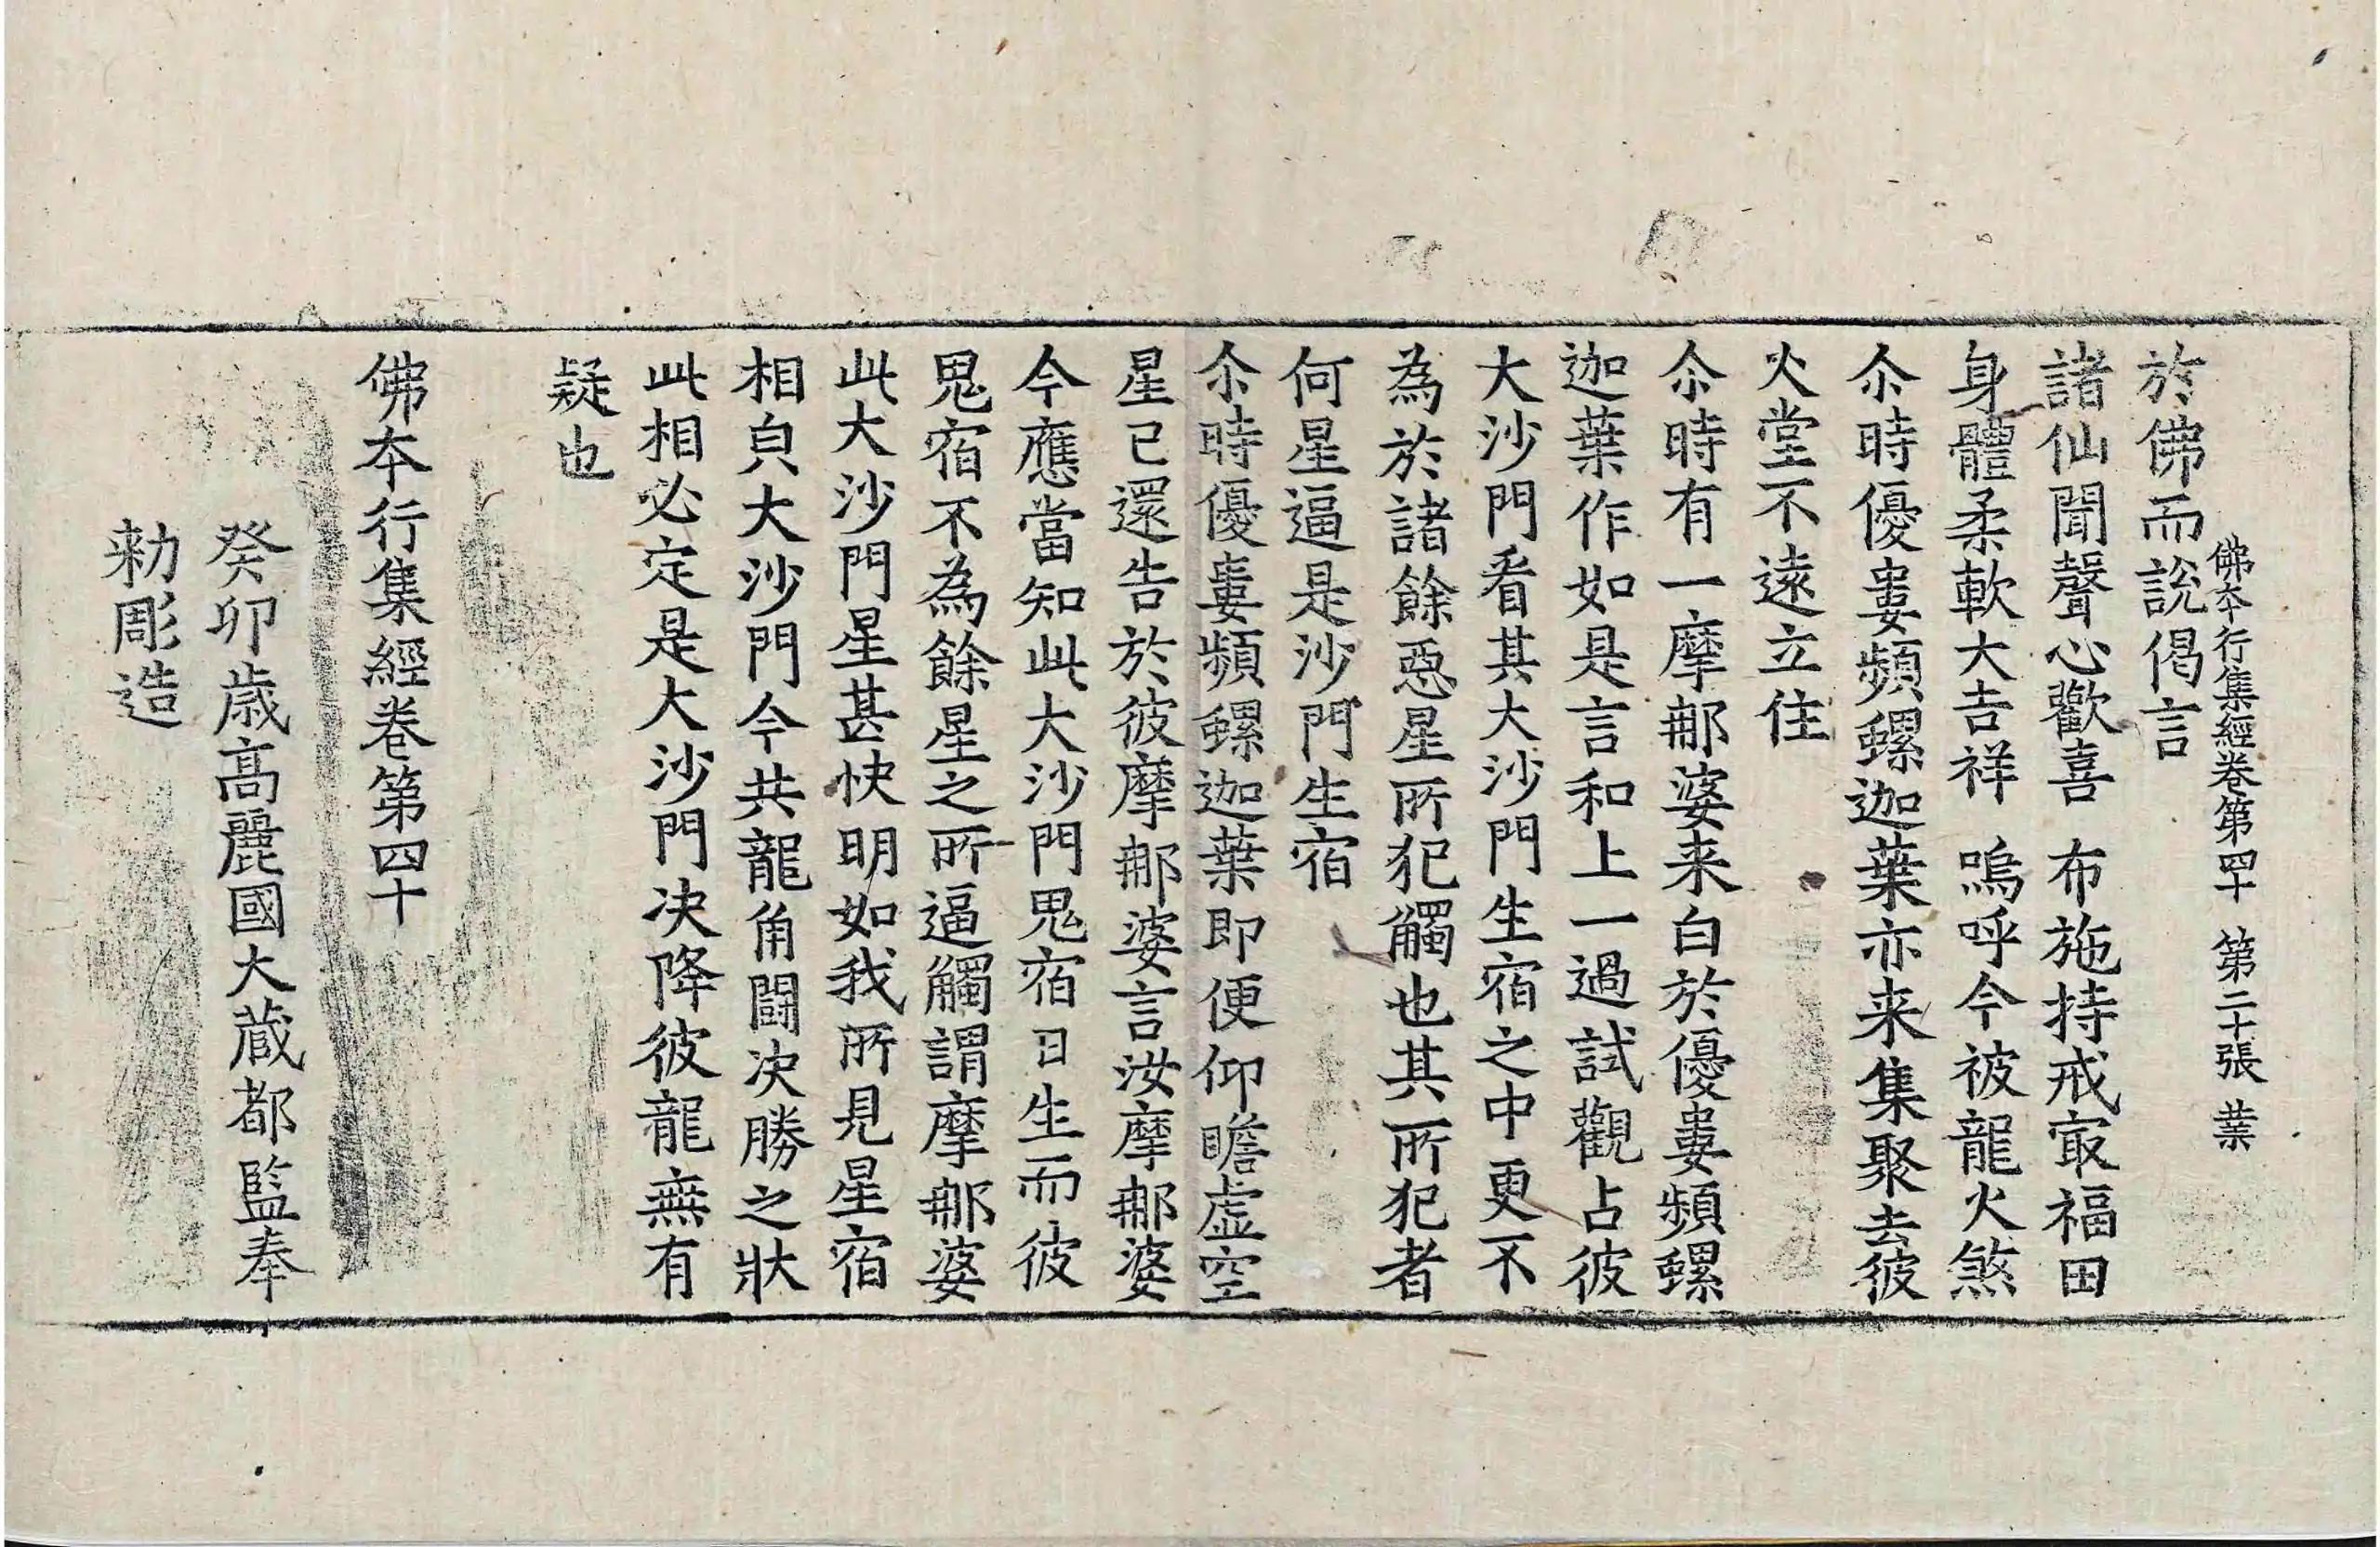 佛本行集經卷第四十　第二十張　業
於佛而說偈言
諸仙聞聲心歡喜　布施持戒㝡福田
身體柔軟大吉祥　嗚呼今被龍火煞
尒時優婁頻螺迦葉亦来集聚去彼
火堂不遠立住
尒時有一摩那婆来白於優婁頻螺
迦葉作如是言和上一過試觀占彼
大沙門看其大沙門生宿之中更不
為於諸餘惡星所犯觸也其所犯者
何星逼是沙門生宿
尒時優婁頻螺迦葉即便仰瞻虛空
星已還告於彼摩那婆言汝摩那婆
今應當知此大沙門鬼宿日生而彼
鬼宿不為餘星之所逼觸謂摩那婆
此大沙門星甚快明如我所見星宿
相皃大沙門今共龍角鬪决勝之狀
此相必定是大沙門决降彼龍無有
疑也
佛本行集經卷第四十
癸卯歲高麗國大藏都監奉
勅彫造